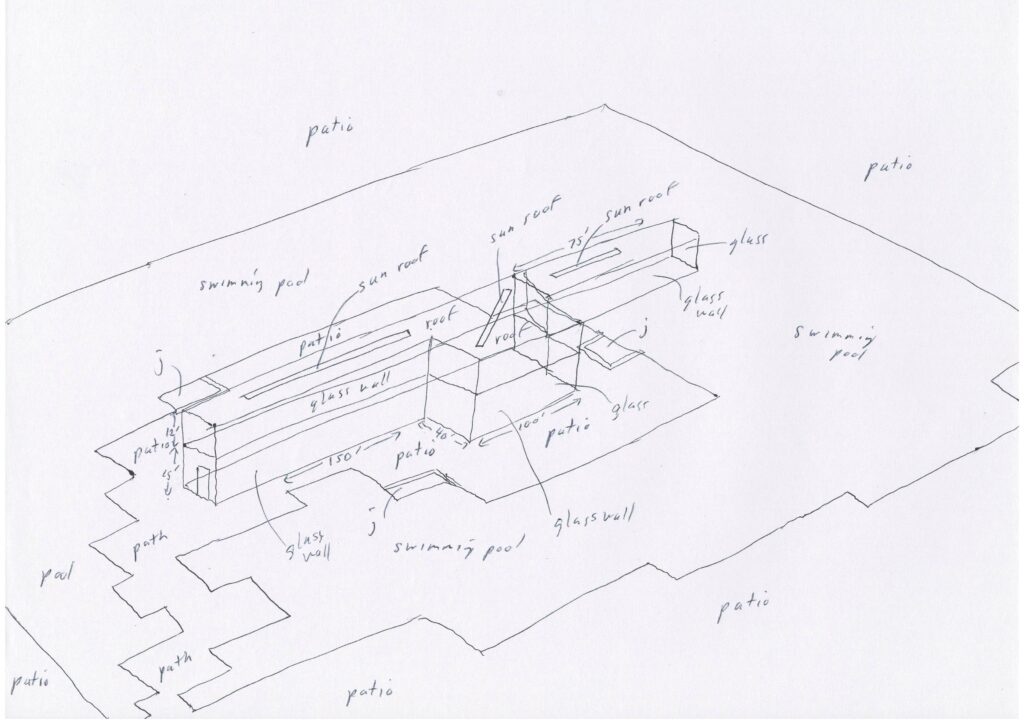 patio
patio
sun roof
sun roof
75'
glass
swimming pool
sun roof
glass
wall
roof
patio
roof
j
j
swimming
pool
glass wall
glass
12'
patio
15'
40'
100'
patio
150'
patio
j
glass wall
glass
wall
swimming pool
path
pool
patio
path
patio
patio